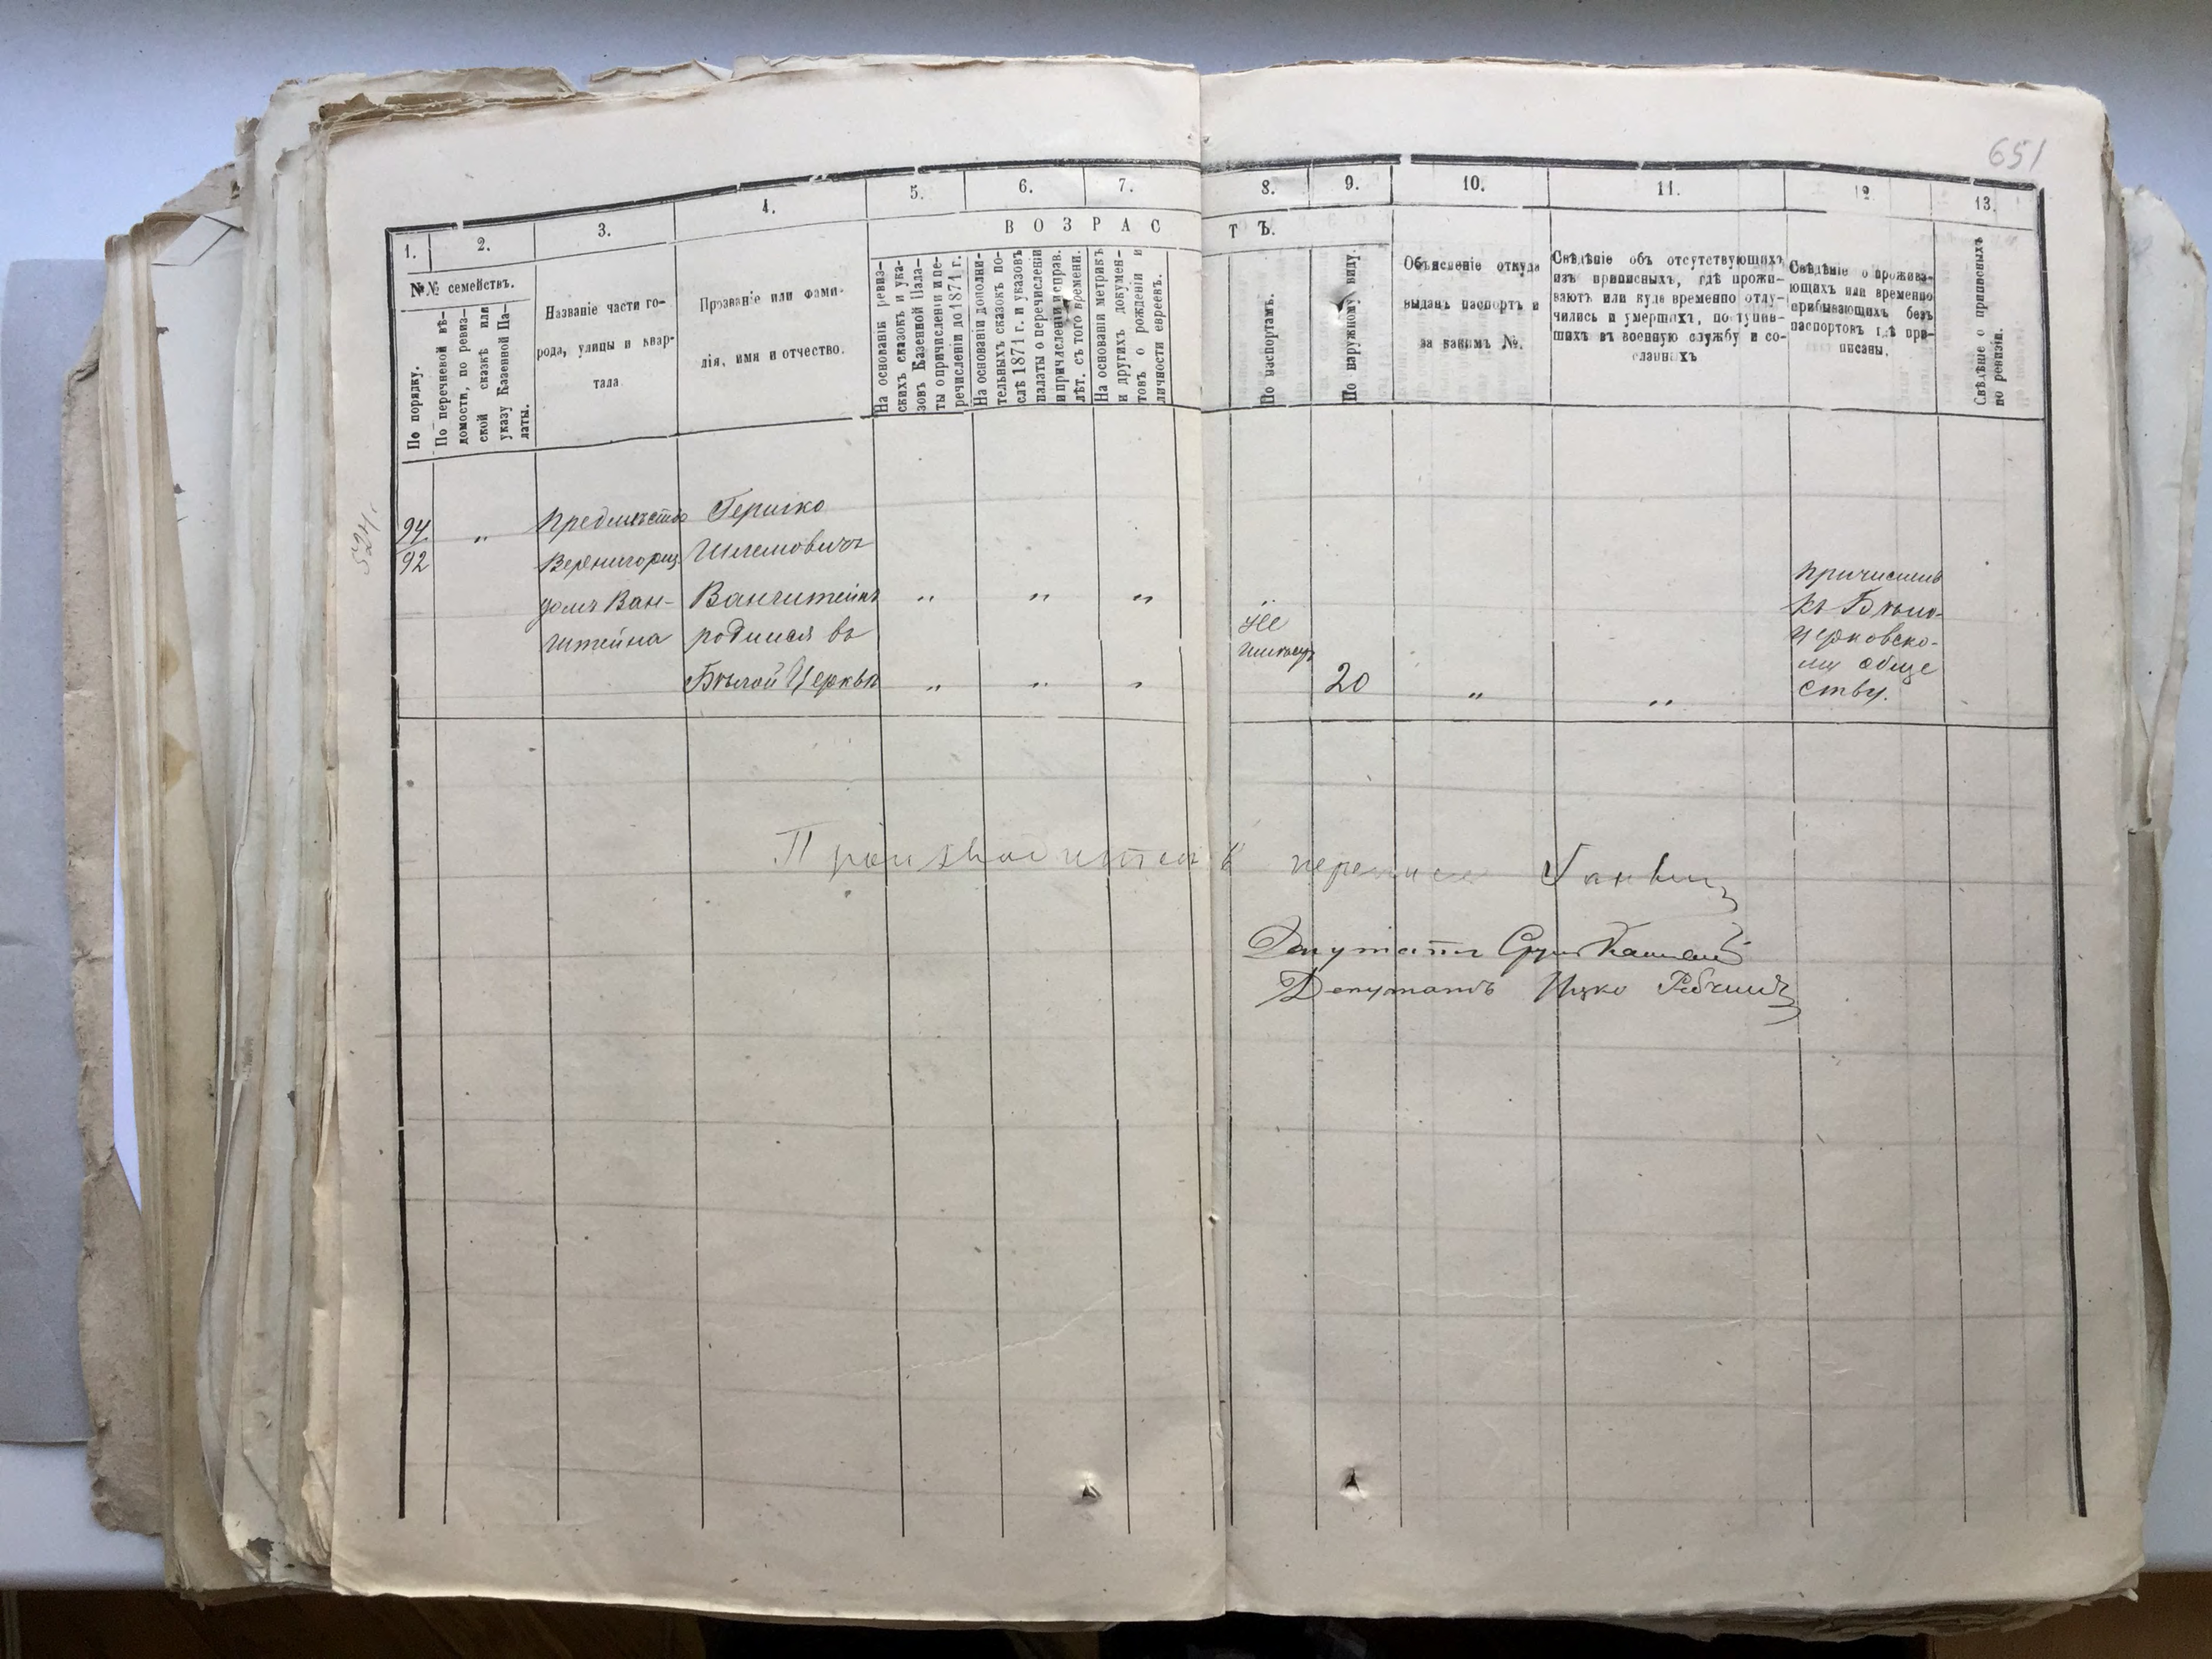 651
1.
2.
3.
4.
5.
6.
7.
8.
9.
10.
11.
12.
13.
ВОЗРАС
ТЪ.
№№ семействъ.
По порядку.
По перечневой вѣ-
домости, по ревиз-
ской сказкѣ или
указу Казенной Па-
латы.
Названіе части го-
рода, улицы и квар-
тала
Прозваніе или фами-
лія, имя и отчество.
На основаніи ревиз-
скихъ сказокъ и ука-
зовъ Казенной Пала-
ты о причисленіи и пе-
речисленіи до 1871 г.
На основаніи дополни-
тельныхъ сказокъ по-
слѣ 1871 г. и указовъ
палаты о перечисленіи
и причисленіи и справ.
лѣт. съ того времени.
На основаніи метрикъ
и другихъ докумен-
товъ о рожденіи и
личности евреевъ.
По паспортамъ.
По наружному виду.
Объясненіе откуда
выданъ паспортъ и
за какимъ №.
Свѣдѣніе объ отсутствующихъ
изъ приписныхъ, гдѣ прожи-
ваютъ или куда временно отлу-
чились и умершихъ, поступив-
шихъ въ военную службу и со-
сланныхъ
Свѣдѣніе о прожива-
ющихъ или временно
прибывающихъ безъ
паспортовъ гдѣ при-
писаны.
Свѣдѣніе о приписныхъ
по ревизіи.
524.
94.
92
"
Предмѣстье
домъ Ван-
штейна
Гершко
Шлемовичъ
Ванштейнъ
родился въ
Бѣлой Церкви
" " "
" " "
Не
имѣетъ
20
"
"
Причисленъ
къ Бѣло-
церковско-
му обще
ству.
Производитель переписи
Депутатъ
Депутатъ Ицко